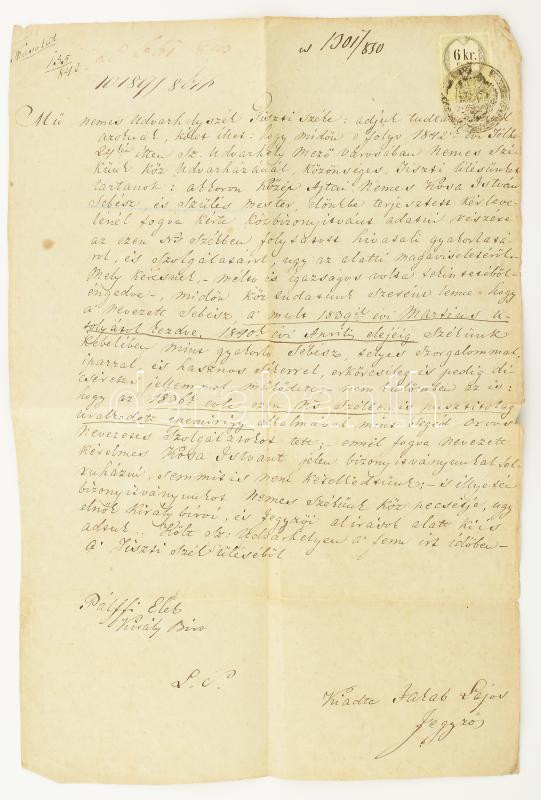 Másolat
135/842
w 1301/850
6 kr.
Mü nemes Udvarhelyszék Tiszti Széke: adjuk tudtára
azoknak, kiket illet: hogy midőn e folyó 1842 évi
24kén itten Sz. Udvarhely Mező városában Nemes Szé-
künk köz Udvarházánál, közönséges, Tiszti ülésünket
tartanok: akkoron közép Ajtai Nemes Kósa István
Sebész, és Szülés mester, előnkbe terjesztett kérleve-
lénél fogva kérte közbizonyítványt adatni részére
az ezen Ns Székben folytatott hivatali gyakorlásá-
ról, és Szolgálatáról, ugy az alatti magaviseletéről.
Mely kérésnek, méltó és igazságos volta tekintetéből
engedve, midőn köz tudásunk szerént lenne, hogy
a nevezett Sebész a mult 1839ik évi Martius u-
tolsójától kezdve, 1840k évi Április elejéig Székünk
kebelében mint gyakorló Sebész, teljes szorgalommal,
iparral, és hasznos sikerrel, erkölcsileg és pedig di-
cséretes jellemmel működött; nem külömben az is:
hogy az 1836k évbe ezen Ns Székben is pusztitólag
uralkodott epemirigy alkalmával mint Segéd Orvos
Nevezetes Szolgálatokat tett; ennél fogva Nevezett
kérelmes Kósa Istvánt jelen bizonyitványunkal fel-
ruházni, semmitis nem késlekedtünk; s illyetén
bizonyitványunkot Nemes Székünk köz pecsétje, ugy
elnök király birói, és Jegyzői aliratok alatt ki is
adtuk. Költ Sz: Udvarhelyen a fenn irt időben
A Tiszti Szék üléséből
Pálffi Elek
Király Biró
L. S.
Kiadta Jakab Lajos
Jegyző